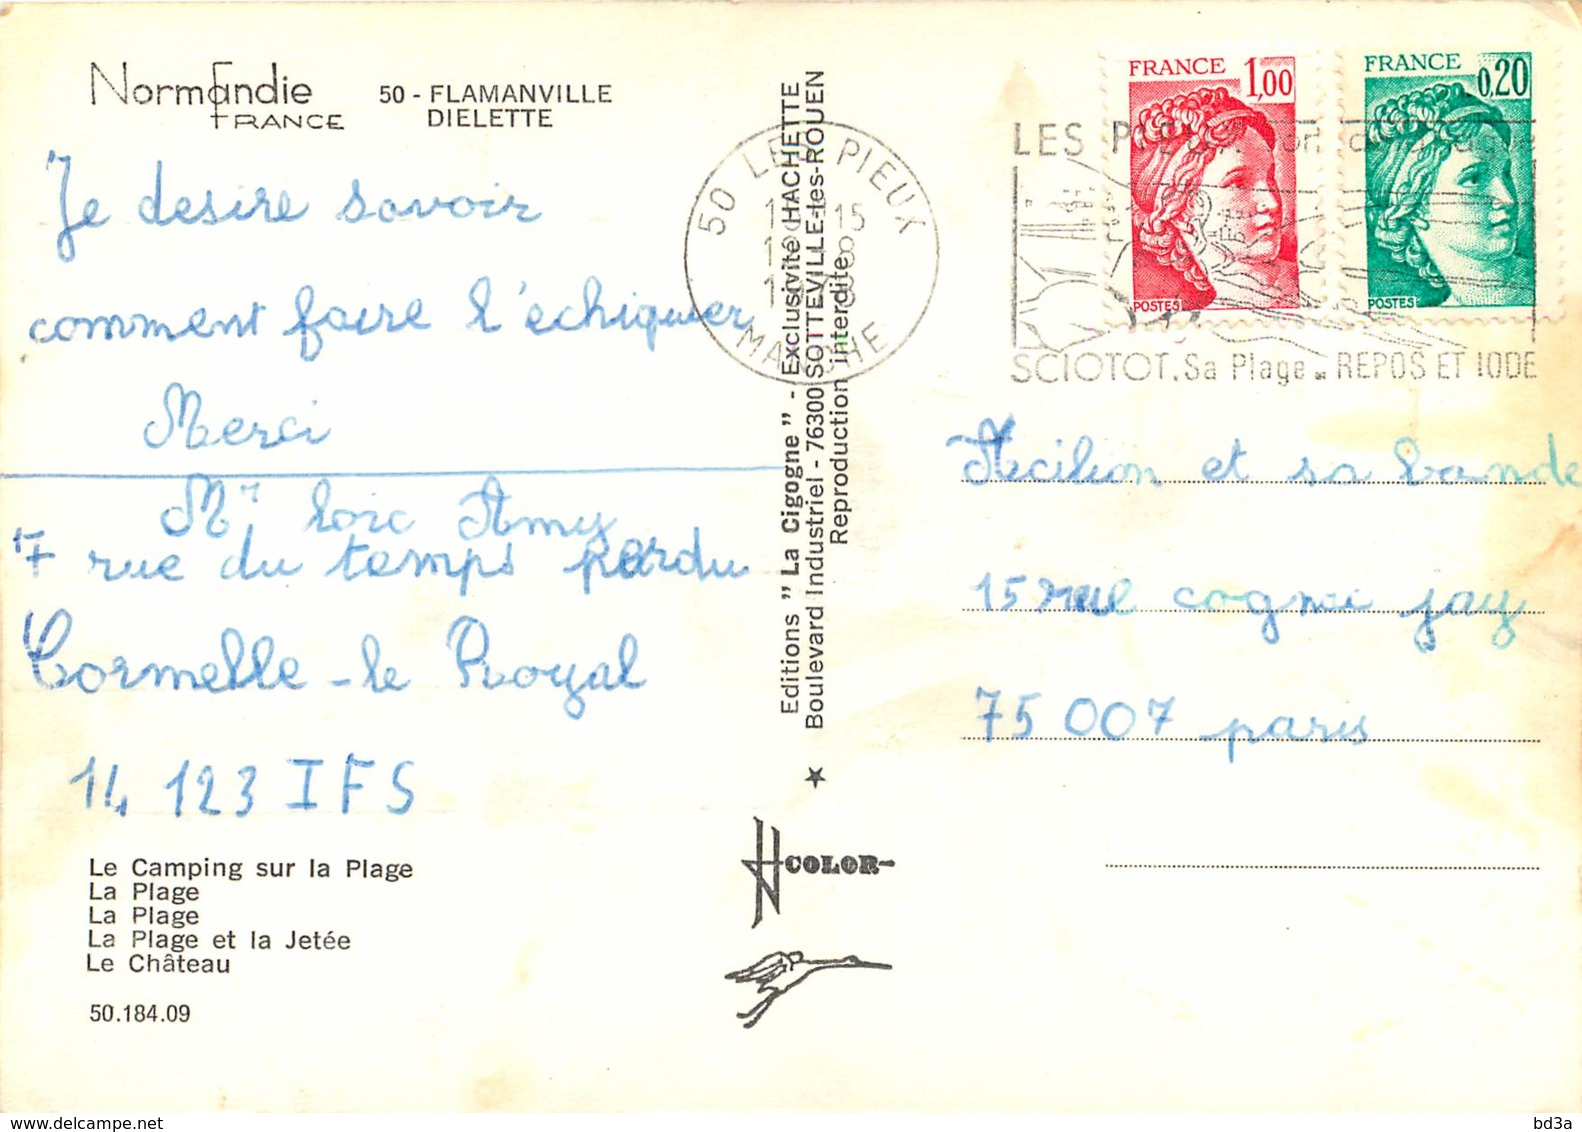 Normandie
FRANCE
50 - FLAMANVILLE
DIELETTE
Je desire savoir
comment faire l'échiquier
Merci
Mr loic Amy
17 rue du temps perdu
Cormelle-le Royal
14 123 IFS
Le Camping sur la Plage
La Plage
La Plage
La Plage et la Jetée
Le Château
50.184.09
Editions "La Cigogne" - Exclusivité HACHETTE
Boulevard Industriel - 76300 SOTTEVILLE-les-ROUEN
Reproduction interdite
COLOR
50 LES PIEUX
15
MANCHE
FRANCE 1,00
POSTES
FRANCE 0,20
POSTES
LES PIEUX
SCIOTOT. Sa Plage. REPOS ET IODE
Acilion et sa bande
15 rue cognac jay
75 007 paris
delcampe.net
bd3a